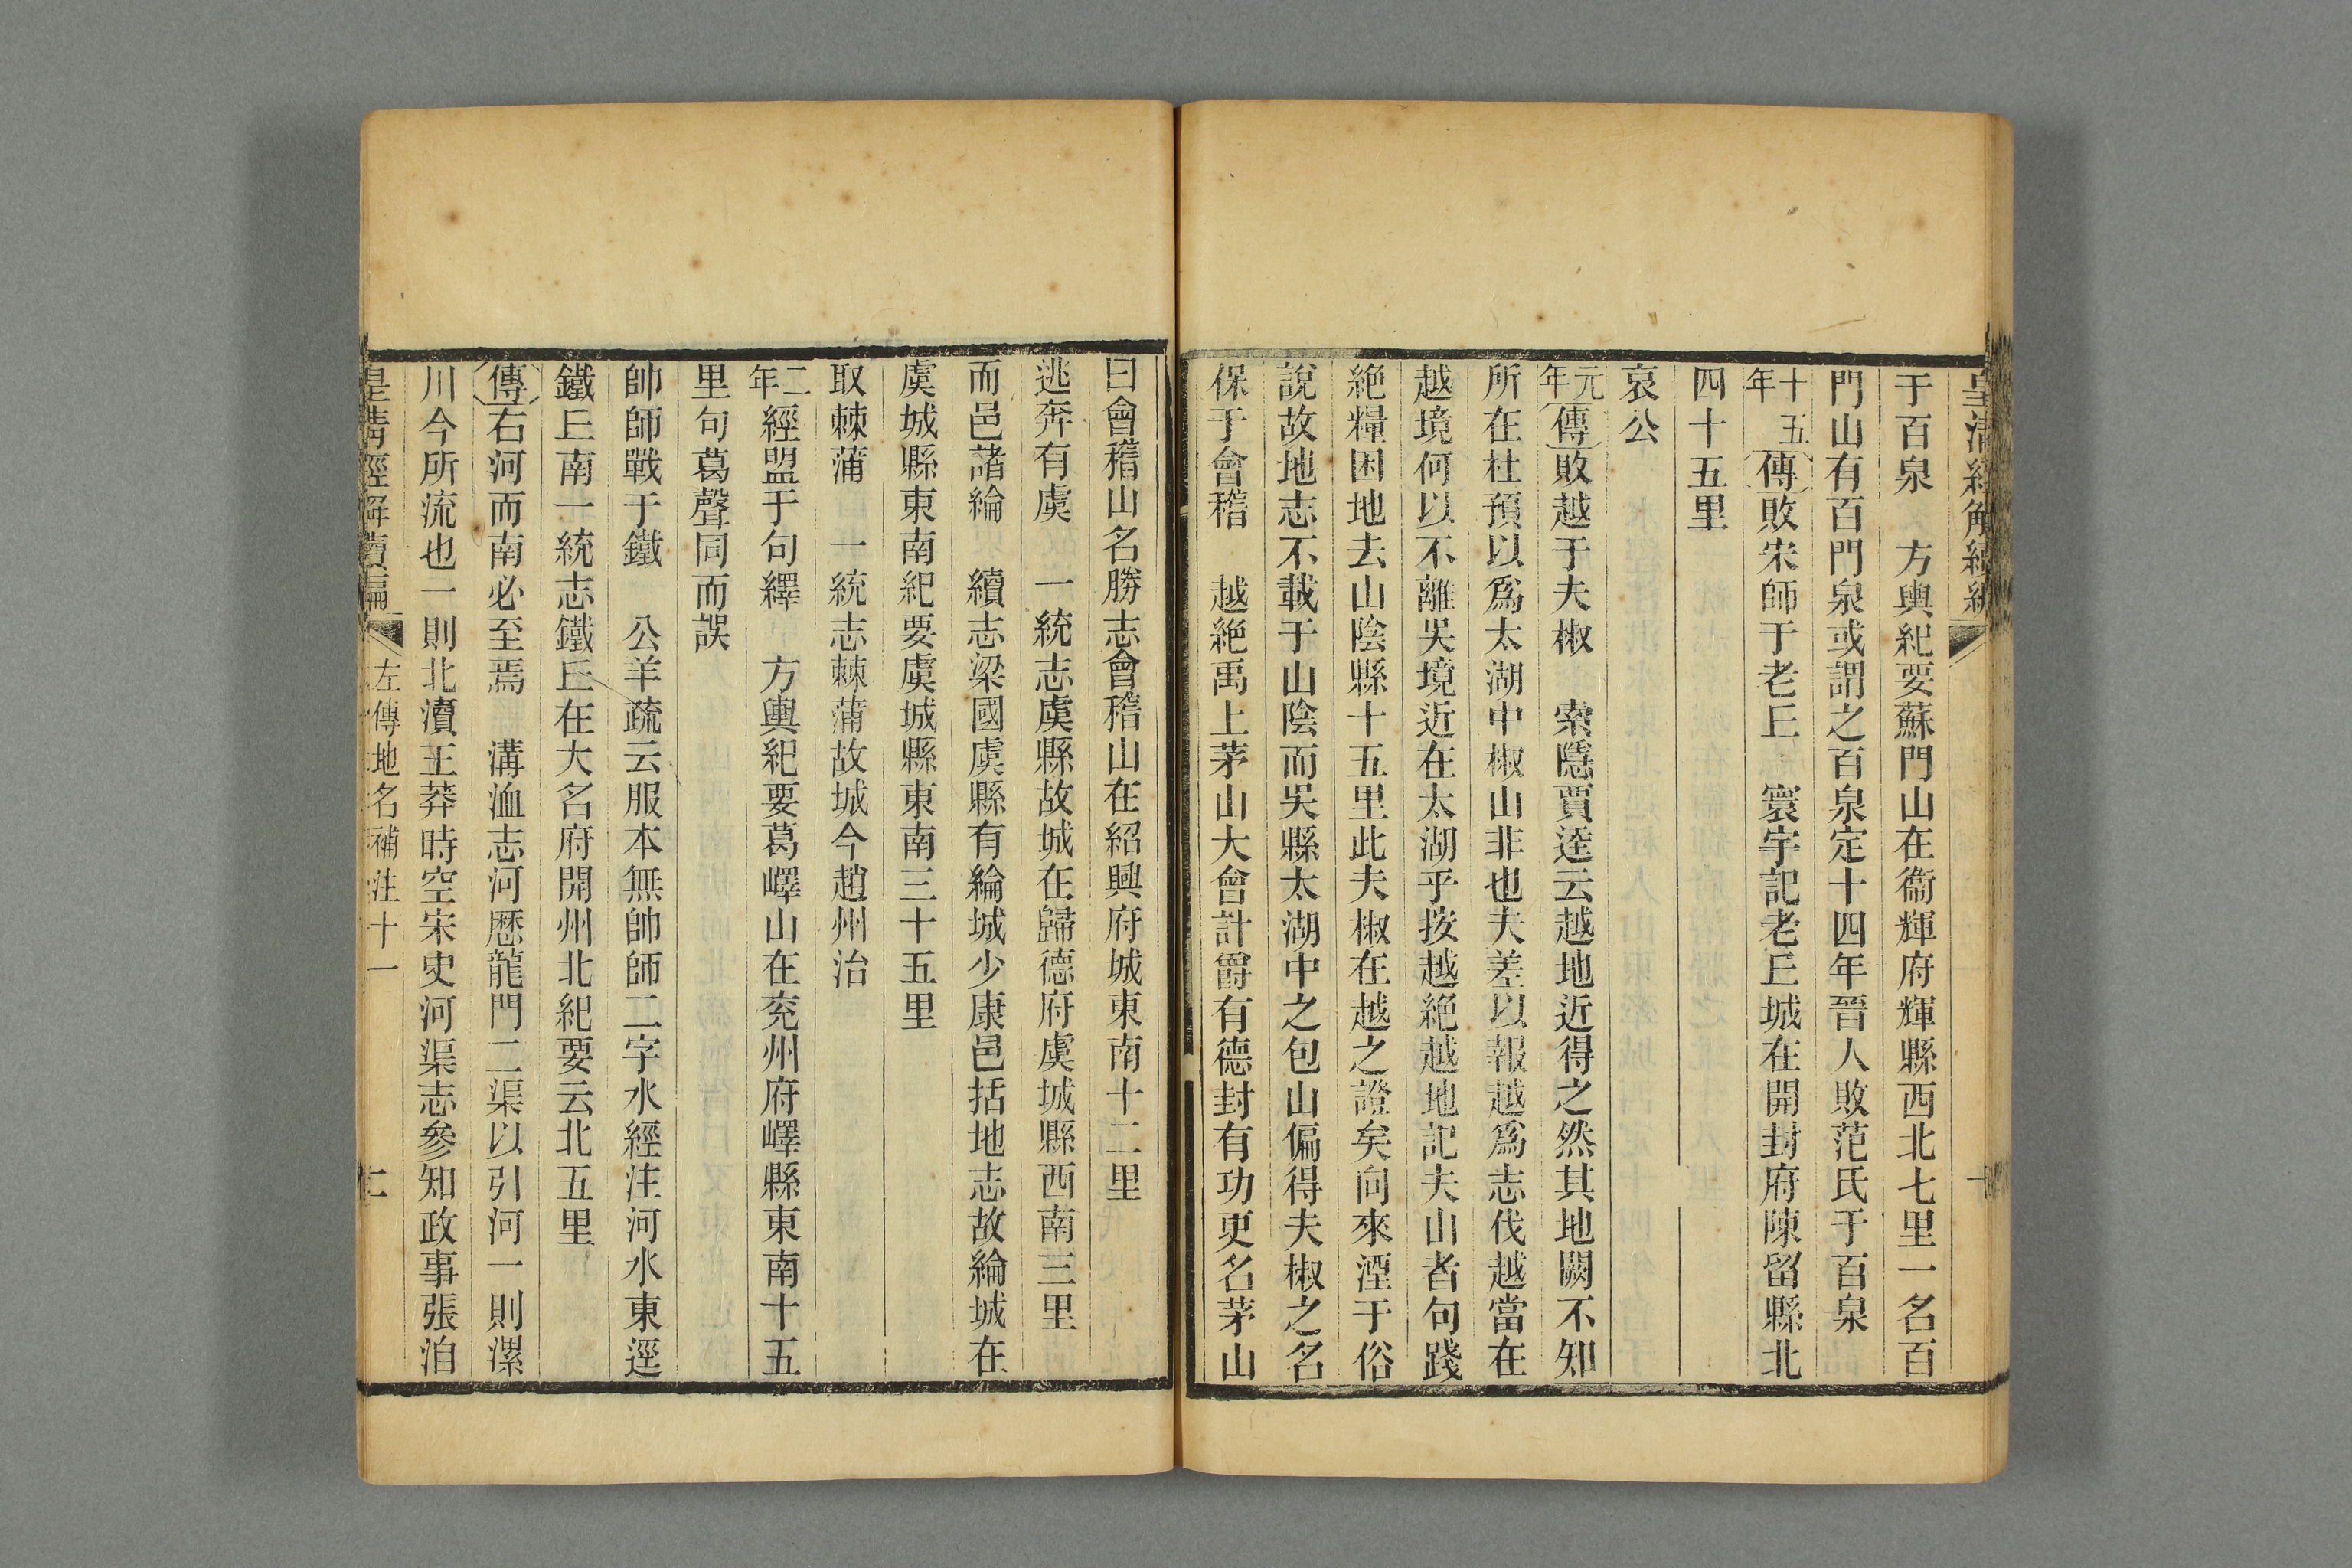 皇清經解續編
于百泉　方輿紀要蘇門山在衞輝府輝縣西北七里一名百
門山有百門泉或謂之百泉定十四年晉人敗范氏于百泉
十五年傳敗宋師于老丘　寰宇記老丘城在開封府陳留縣北
四十五里
哀公
元年傳敗越于夫椒　索隱賈逵云越地近得之然其地闕不知
所在杜預以爲太湖中椒山非也夫差以報越爲志伐越當在
越境何以不離吳境近在太湖乎按越絶越地記夫山者句踐
絶糧困地去山陰縣十五里此夫椒在越之證矣向來湮于俗
說故地志不載于山陰而吳縣太湖中之包山偏得夫椒之名
保于會稽　越絶禹上茅山大會計爵有德封有功更名茅山
曰會稽山名勝志會稽山在紹興府城東南十二里
逃奔有虞　一統志虞縣故城在歸德府虞城縣西南三里
而邑諸綸　續志梁國虞縣有綸城少康邑括地志故綸城在
虞城縣東南紀要虞城縣東南三十五里
取棘蒲　一統志棘蒲故城今趙州治
二年經盟于句繹　方輿紀要葛嶧山在兖州府嶧縣東南十五
里句葛聲同而誤
帥師戰于鐵　公羊疏云服本無帥師二字水經注河水東逕
鐵丘南一統志鐵丘在大名府開州北紀要云北五里
傳右河而南必至焉　溝洫志河歴龍門二渠以引河一則漯
川今所流也一則北瀆王莽時空宋史河渠志參知政事張洎
皇清經解續編　左傳地名補注十一　二